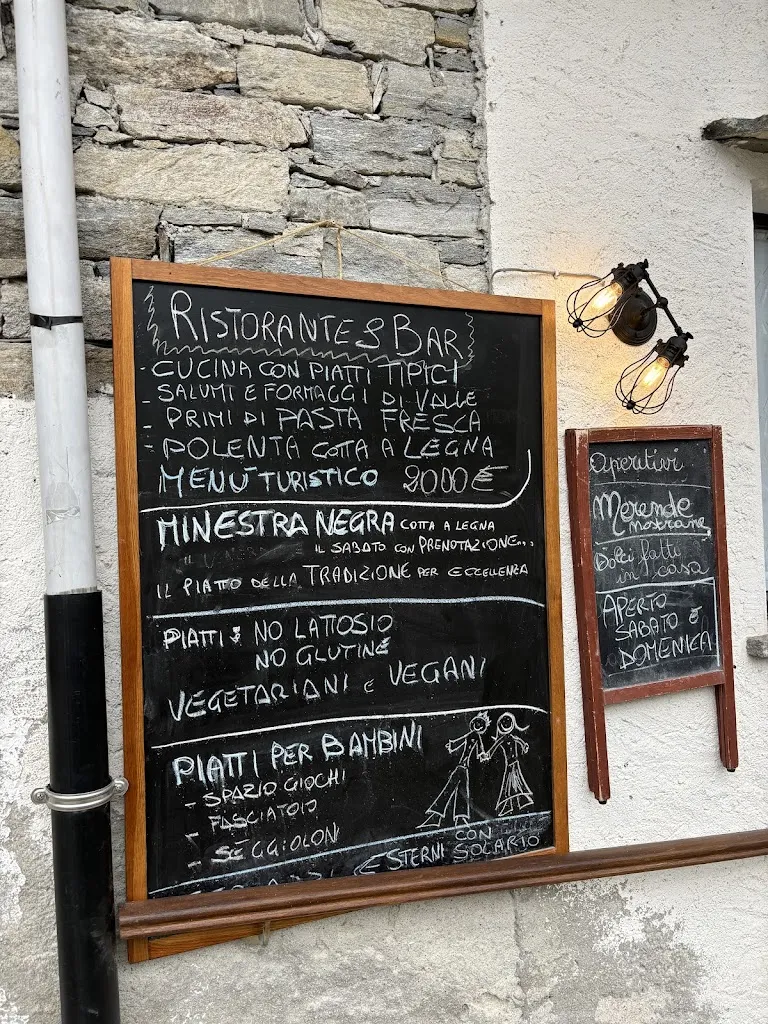 RISTORANTE & BAR
- CUCINA CON PIATTI TIPICI
- SALUMI E FORMAGGI DI VALLE
- PRIMI DI PASTA FRESCA
- POLENTA COTTA A LEGNA
MENU' TURISTICO 20,00 €
MINESTRA NEGRA COTTA A LEGNA
IL SABATO CON PRENOTAZIONE...
IL PIATTO DELLA TRADIZIONE PER ECCELLENZA
PIATTI: NO LATTOSIO
NO GLUTINE
VEGETARIANI E VEGANI
PIATTI PER BAMBINI
- SPAZIO GIOCHI
- FASCIATOIO
- SEGGIOLONI
ESTERNI CON SOLARIO
Aperitivi
Merende nostrane
Dolci fatti
in casa
APERTO
SABATO E
DOMENICA